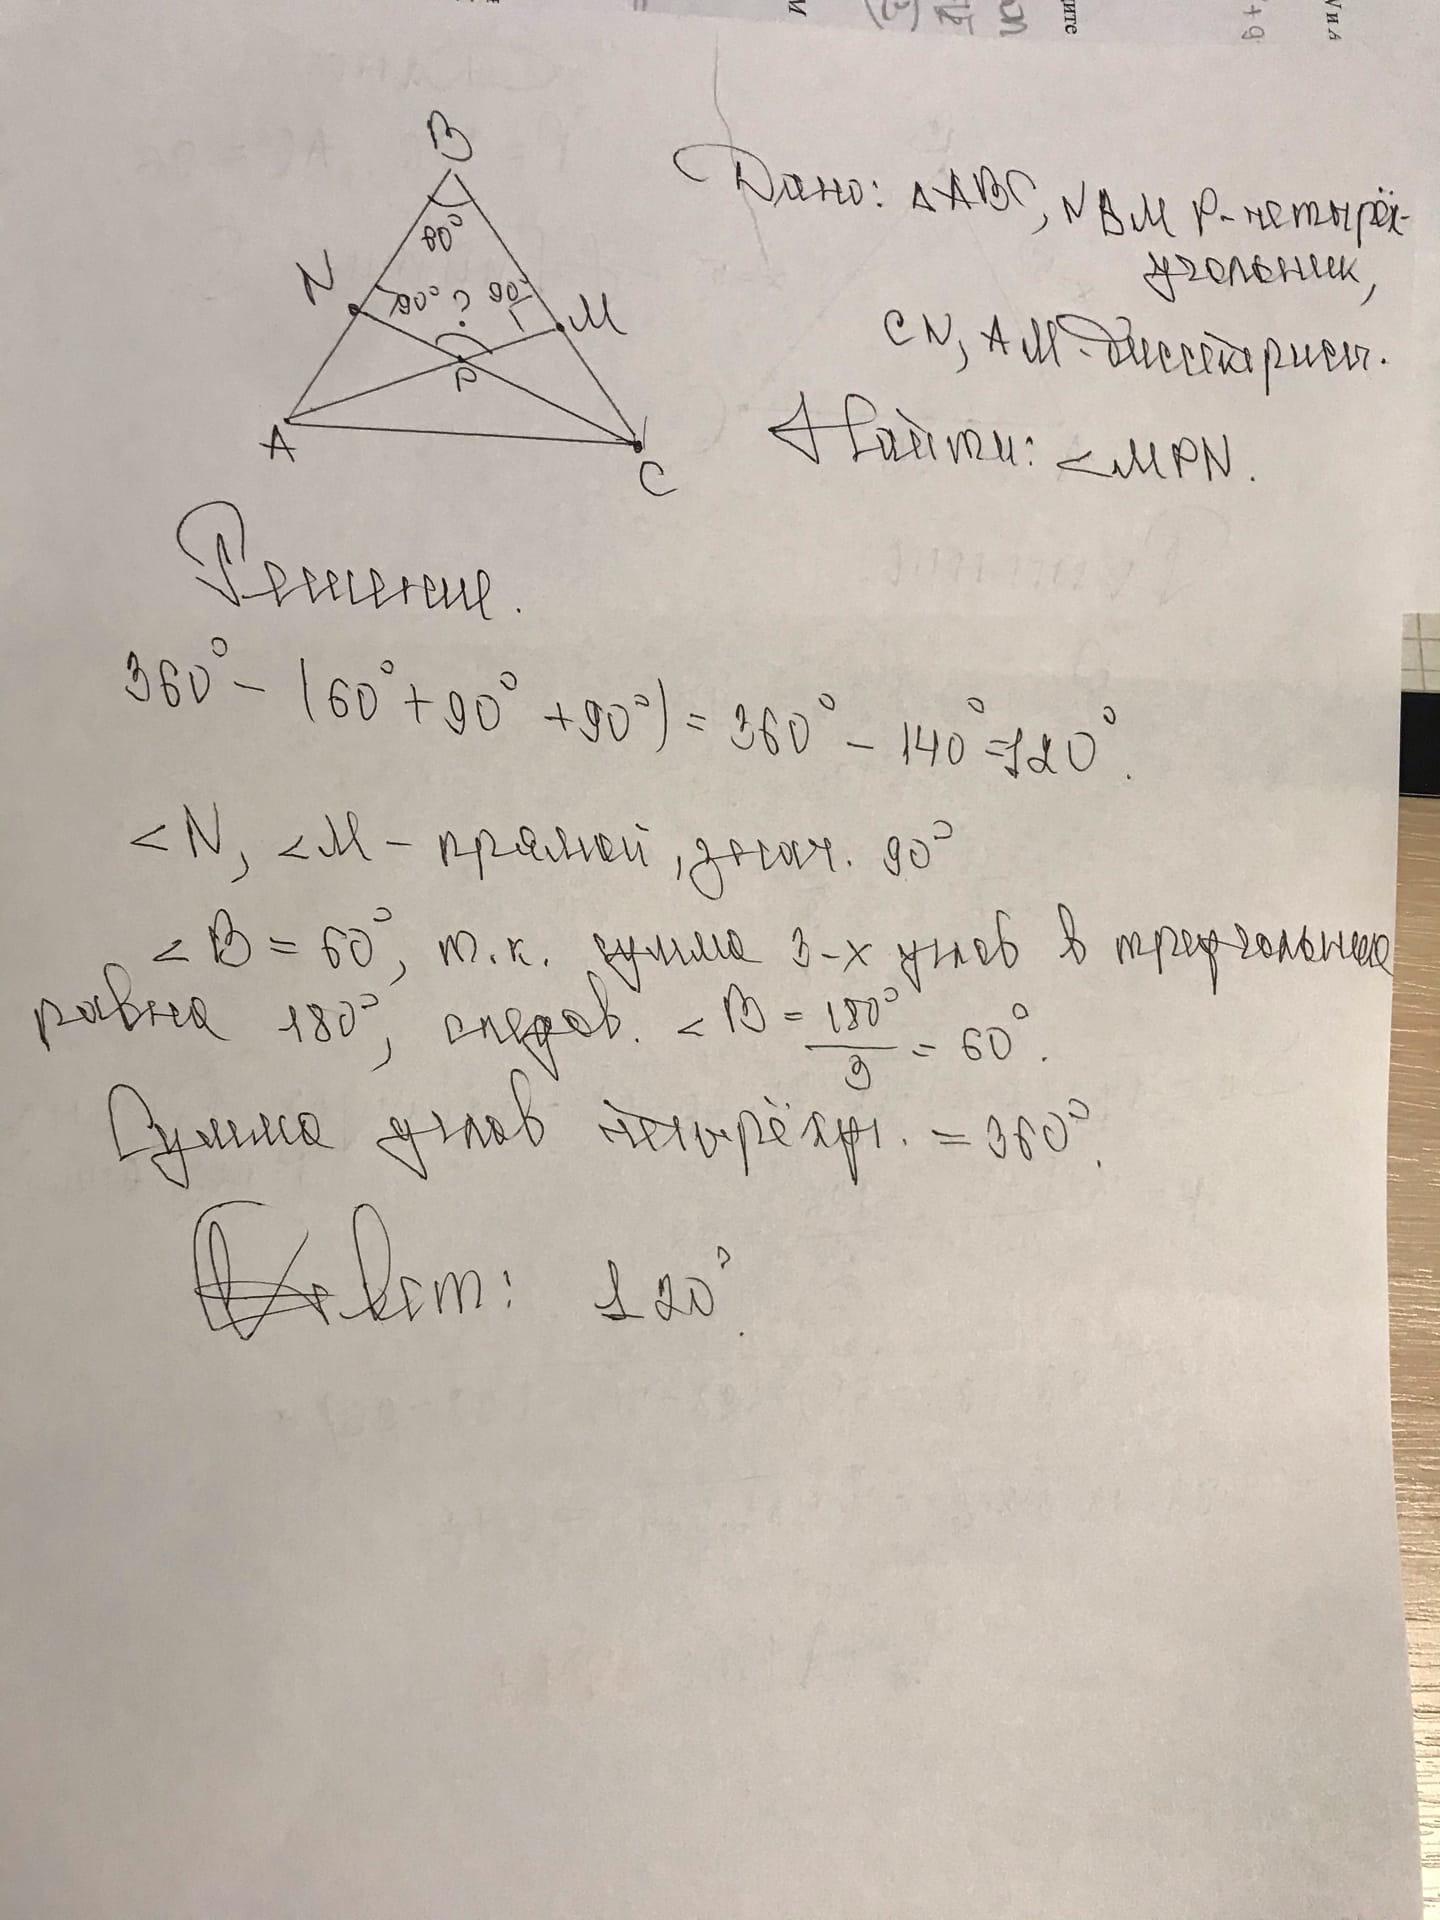 B
60°
N
90°
?
90°
M
P
A
C
Дано: △ABC, NBMP-четырёх-
угольник,
CN, AM-биссектрисы.
Найти: <MPN.
Решение.
360° - (60° + 90° + 90°) = 360° - 140° = 120°.
<N, <M - прямой, знач. 90°
<B = 60°, т.к. сумма 3-х углов в треугольнике
равна 180°, следов. <B = 180°/3 = 60°.
Сумма углов четырёхуг. = 360°.
Ответ: 120°.